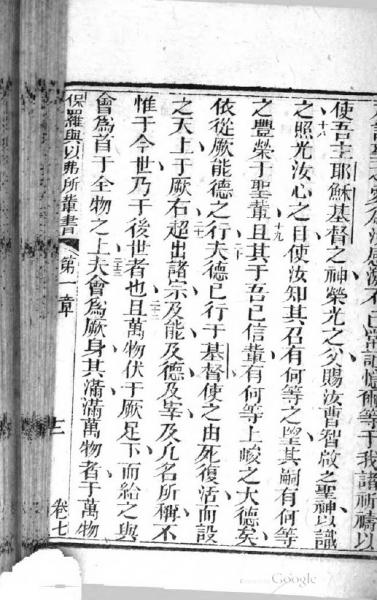 感激不已常記憶爾等于我諸祈禱以
使吾主耶穌基督之神榮光之父賜汝曹智啟之聖神以識
十八之照光汝心之目使汝知其召有何等之望其嗣有何等
之豐榮于聖輩十九且其于吾已信輩有何等上峻之大德矣
依從厥能德之行二十夫德已行于基督使之由死復活而設
之天上于厥右超出諸宗及能及德及宰及凡名所稱不
惟于今世乃于後世者也二十二且萬物伏于厥足下而給之與
會為首于全物之上二十三夫會為厥身其滿滿萬物者于萬物
保羅與以弗所輩書 第一章 卷七
Google